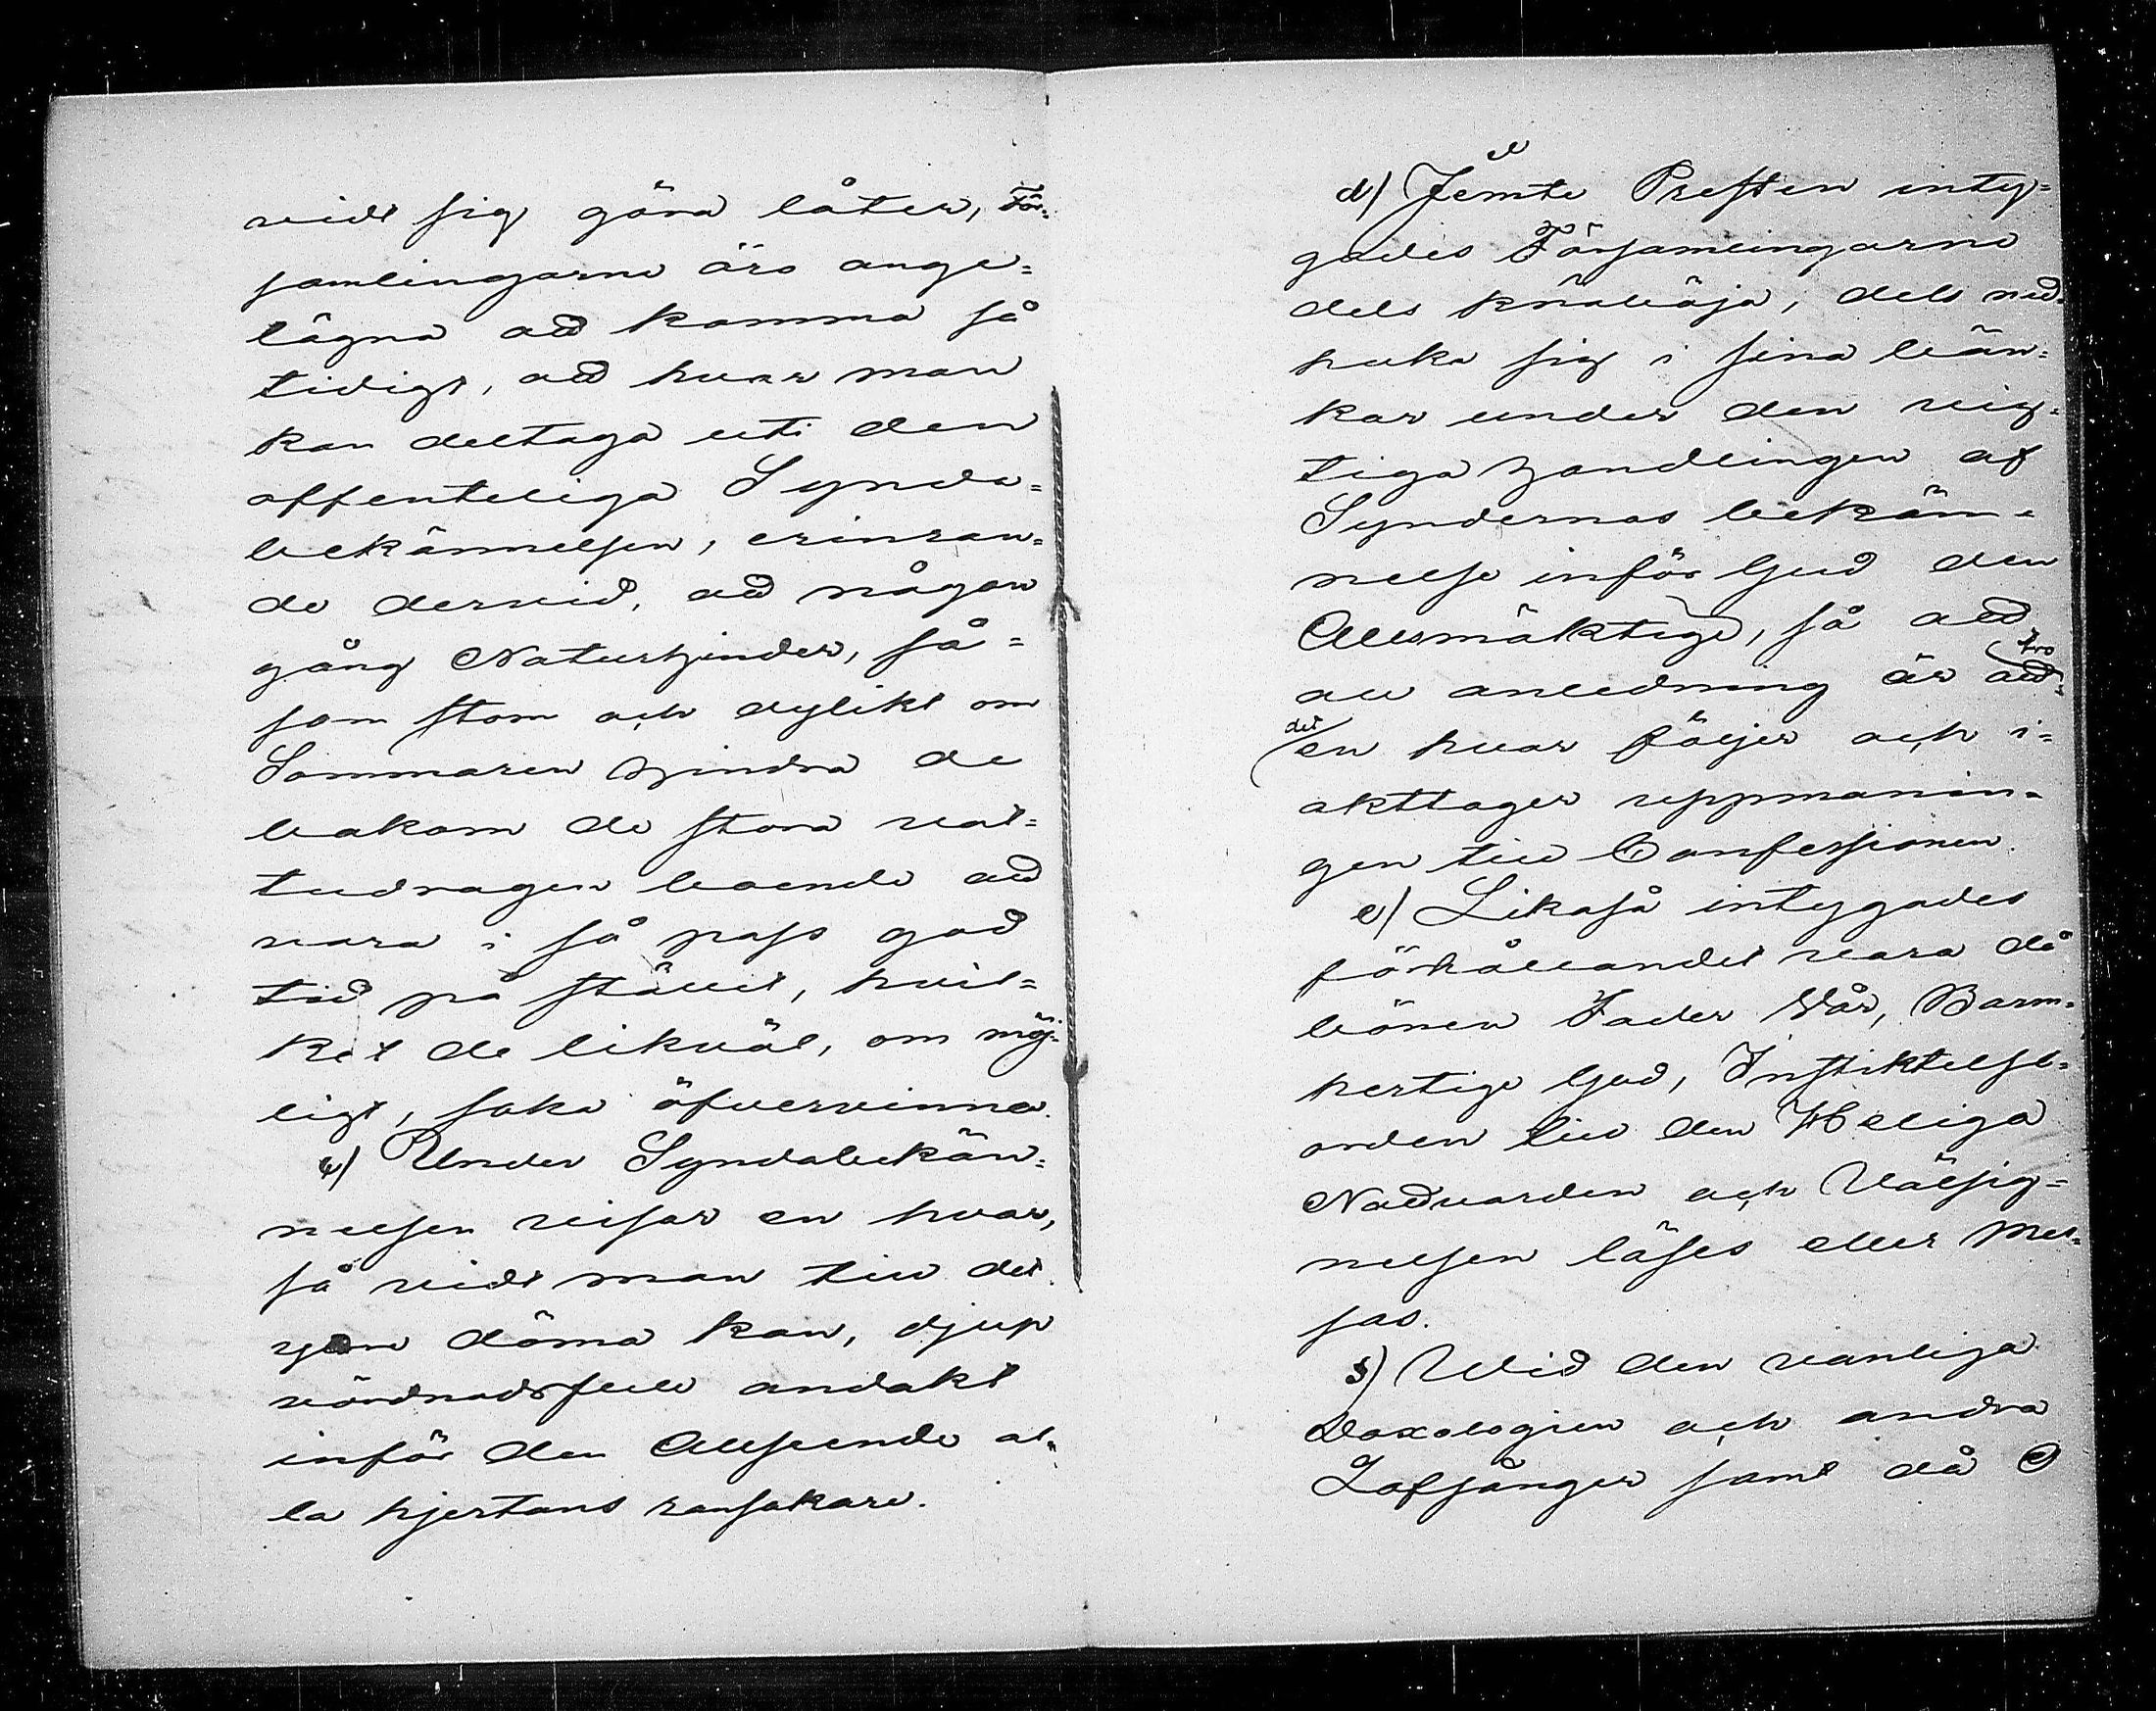 vidt sig göra låter, För-
samlingarne äro ange-
lägna att komma så
tidigt, att hvar man
kan deltaga uti den
offenteliga Synda-
bekännelsen, erinran-
de dervid, att någon
gång Naturhinder, så-
som storm och dylikt om
Sommaren hindra de
bakom de stora vat-
tudragen boende att
vara i så pass god
tid på stället, hvil-
ket de likväl, om möj-
ligt, söka öfvervinna.
c) Under Syndabekän-
nelsen visar en hvar,
så vidt man till det
yttre döma kan, djup
vördnadsfull andakt
inför den Allseende al-
la hjertans ransakare.
d) Jemte Presten inty-
gades Församlingarne
dels knäböja, dels ned-
huka sig i sina bän-
kar under den vig-
tiga handlingen af
Syndernas bekän-
nelse inför Gud den
Allsmäktige, så att
all anledning är att tro
det en hvar följer och i-
akttager uppmanin-
gen till Confessionen.
e) Likaså intygades
förhållandet vara då
bönen Fader Vår, Barm-
hertige Gud, Instiktelse-
orden till den Heliga
Nattvarden och Välsig-
nelsen läses eller Mes-
sas.
3) Wid den vanliga
Doxologien och andra
Lofsånger samt då